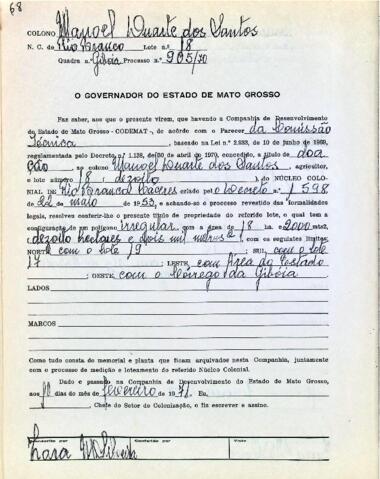 68
COLONO Manoel Duarte dos Santos
N. C. de Rio Branco Lote n.º 18
Quadra n.º Gibóia Processo n.º 905/70
O GOVERNADOR DO ESTADO DE MATO GROSSO
Faz saber, aos que o presente virem, que havendo a Companhia de Desenvolvimento
do Estado de Mato Grosso - CODEMAT -, de acôrdo com o Parecer da Comissão
Técnica, baseado na Lei n.º 2.933, de 10 de junho de 1969,
regulamentada pelo Decreto n.º 1.138, de 30 de abril de 1970, concedido, a título de doa
ção ao colono Manoel Duarte dos Santos, agricultor,
o lote número 18 (dezoito) do NÚCLEO COLO-
NIAL DE Rio Branco, Cáceres criado pelo Decreto n.º 1.598
de 22 maio de 1953, e achando-se o processo revestido das formalidades
legais, resolveu conferir-lhe o presente título de propriedade do referido lote, o qual tem a
configuração de um polígono irregular com a área de 18 ha. e 2000 mts2,
(dezoito hectares e dois mil metros²), com os seguintes limites:
NORTE com o lote 19 ; SUL, com o lote
17 ; LESTE, com Área do Estado
; OESTE, com o Córrego da Gibóia
LADOS
MARCOS
Como tudo consta do memorial e planta que ficam arquivados nesta Companhia, juntamente
com o processo de medição e loteamento do referido Núcleo Colonial.
Dado e passado na Companhia de Desenvolvimento do Estado de Mato Grosso,
aos 10 dias do mês de fevereiro de 1971. Eu,
, Chefe do Setor de Colonização, o fiz escrever e assino.
Transcrito por Conferido por Visto